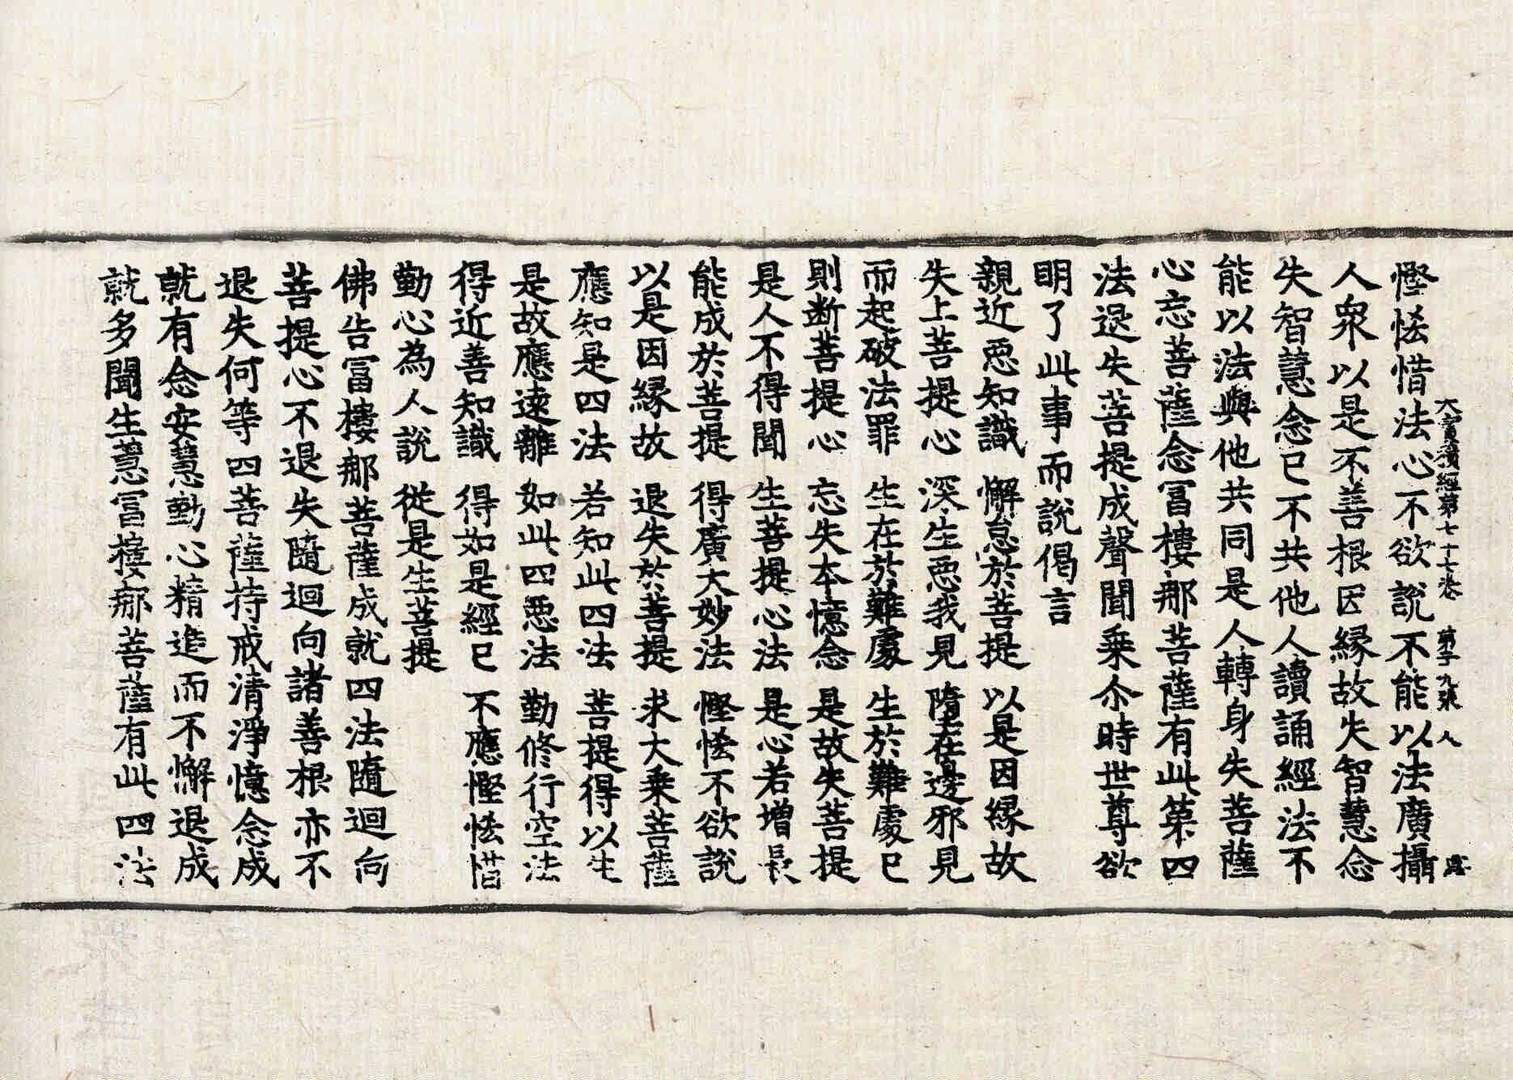 大寶積經第七十七卷 第十九張 人
慳悋惜法心不欲說不能以法廣攝
人衆以是不善根因縁故失智慧念
失智慧念已不共他人讀誦經法不
能以法與他共同是人轉身失菩薩
心忘菩薩念冨樓那菩薩有此第四
法退失菩提成聲聞乗尒時世尊欲
明了此事而說偈言
親近惡知識 懈怠於菩提 以是因縁故
失上菩提心 深生惡我見 墮在邊邪見
而起破法罪 生在於難處 生於難處已
則断菩提心 忘失本憶念 是故失菩提
是人不得聞 生菩提心法 是心若增長
能成於菩提 得廣大妙法 慳悋不欲說
以是因縁故 退失於菩提 求大乗菩薩
應知是四法 若知此四法 菩提得以生
是故應遠離 如此四惡法 勤修行空法
得近善知識 得如是經已 不應慳悋惜
勤心為人說 從是生菩提
佛告冨樓那菩薩成就四法隨迴向
菩提心不退失隨迴向諸善根亦不
退失何等四菩薩持戒清淨憶念成
就有念安慧勤心精進而不懈退成
就多聞生慧冨樓那菩薩有此四法